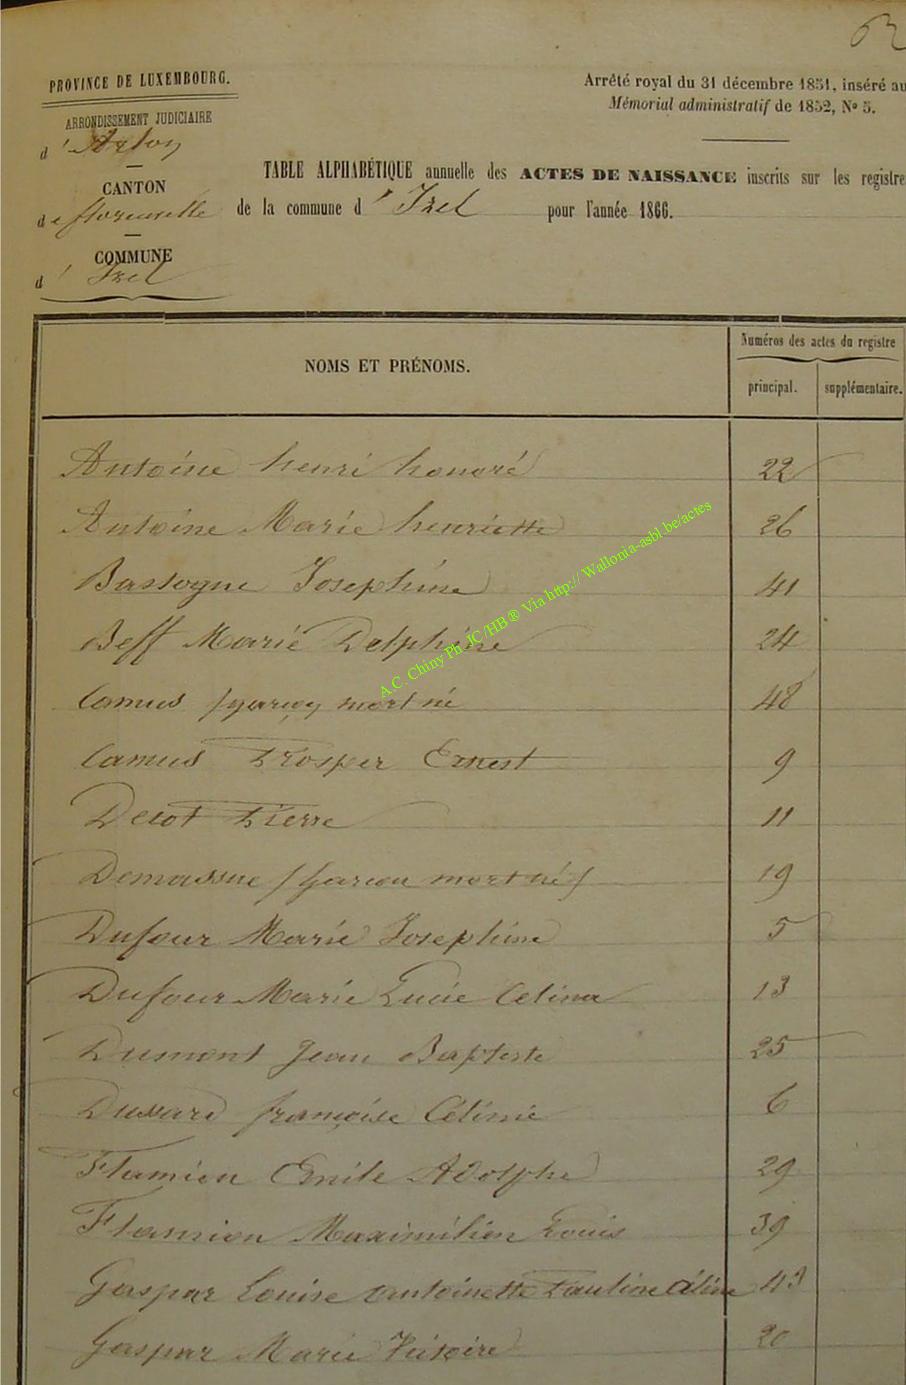 PROVINCE DE LUXEMBOURG.
ARRONDISSEMENT JUDICIAIRE
d'Arlon
CANTON
de florenville
COMMUNE
d'Izel
Arrêté royal du 31 décembre 1851, inséré au
Mémorial administratif de 1852, No 5.
TABLE ALPHABÉTIQUE annuelle des ACTES DE NAISSANCE inscrits sur les registre
de la commune d'Izel pour l'année 1866.
NOMS ET PRÉNOMS.
Numéros des actes du registre
principal. supplémentaire.
Antoine henri honoré 22
Antoine Marie henriette 26
Bastogne Josephine 41
Beff Marie Delphine 24
Camus /garçon mort né 48
Camus Prosper Ernest 9
Decot Pierre 11
Demassue /Garcon mort né/ 19
Dufour Marie Josephine 5
Dufour Marie Lucie Celina 13
Dumont Jean Baptiste 25
Dussard françoise Célinie 6
Flamion Emile Adolphe 29
Flamion Maximilien Louis 39
Gaspar Louise Antoinette Pauline Céline 43
Gaspar Marie Victoire 20
A.C. Chiny Ph JC/HB® Via http:// Wallonia-asbl.be/actes